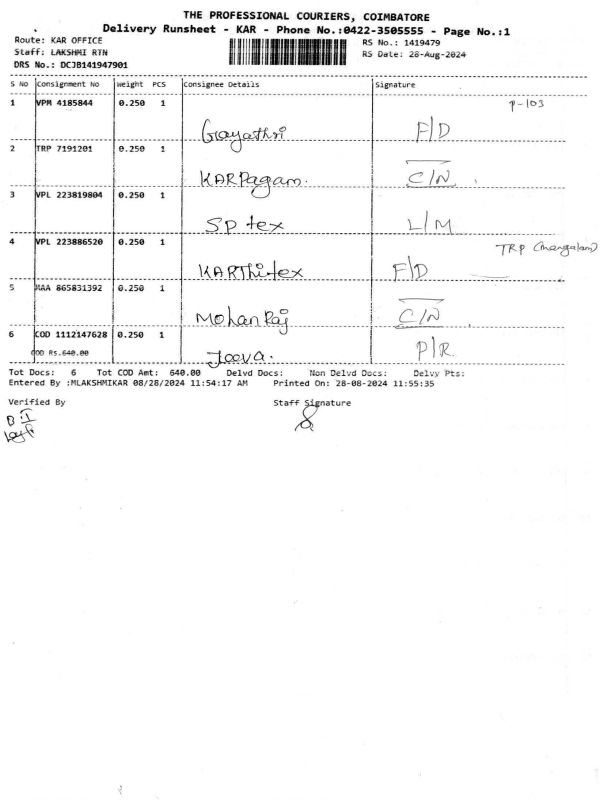 THE PROFESSIONAL COURIERS, COIMBATORE
Delivery Runsheet - KAR - Phone No.:0422-3505555 - Page No.:1
Route: KAR OFFICE
RS No.: 1419479
Staff: LAKSHMI RTN
RS Date: 28-Aug-2024
DRS No.: DCJB141947901
S No Consignment No Weight PCS Consignee Details Signature
1 VPM 4185844 0.250 1 P-103
Gayathri F/D
2 TRP 7191201 0.250 1
KARPagam. C/N
3 VPL 223819804 0.250 1
SP tex L/M
4 VPL 223886520 0.250 1 TRP (mangalam)
KARThi tex F/D
5 MAA 865831392 0.250 1
Mohan Raj C/N
6 COD 1112147628 0.250 1
COD Rs.640.00 Jeeva. P/R
Tot Docs: 6 Tot COD Amt: 640.00 Delvd Docs: Non Delvd Docs: Delvy Pts:
Entered By :MLAKSHMIKAR 08/28/2024 11:54:17 AM Printed On: 28-08-2024 11:55:35
Verified By Staff Signature